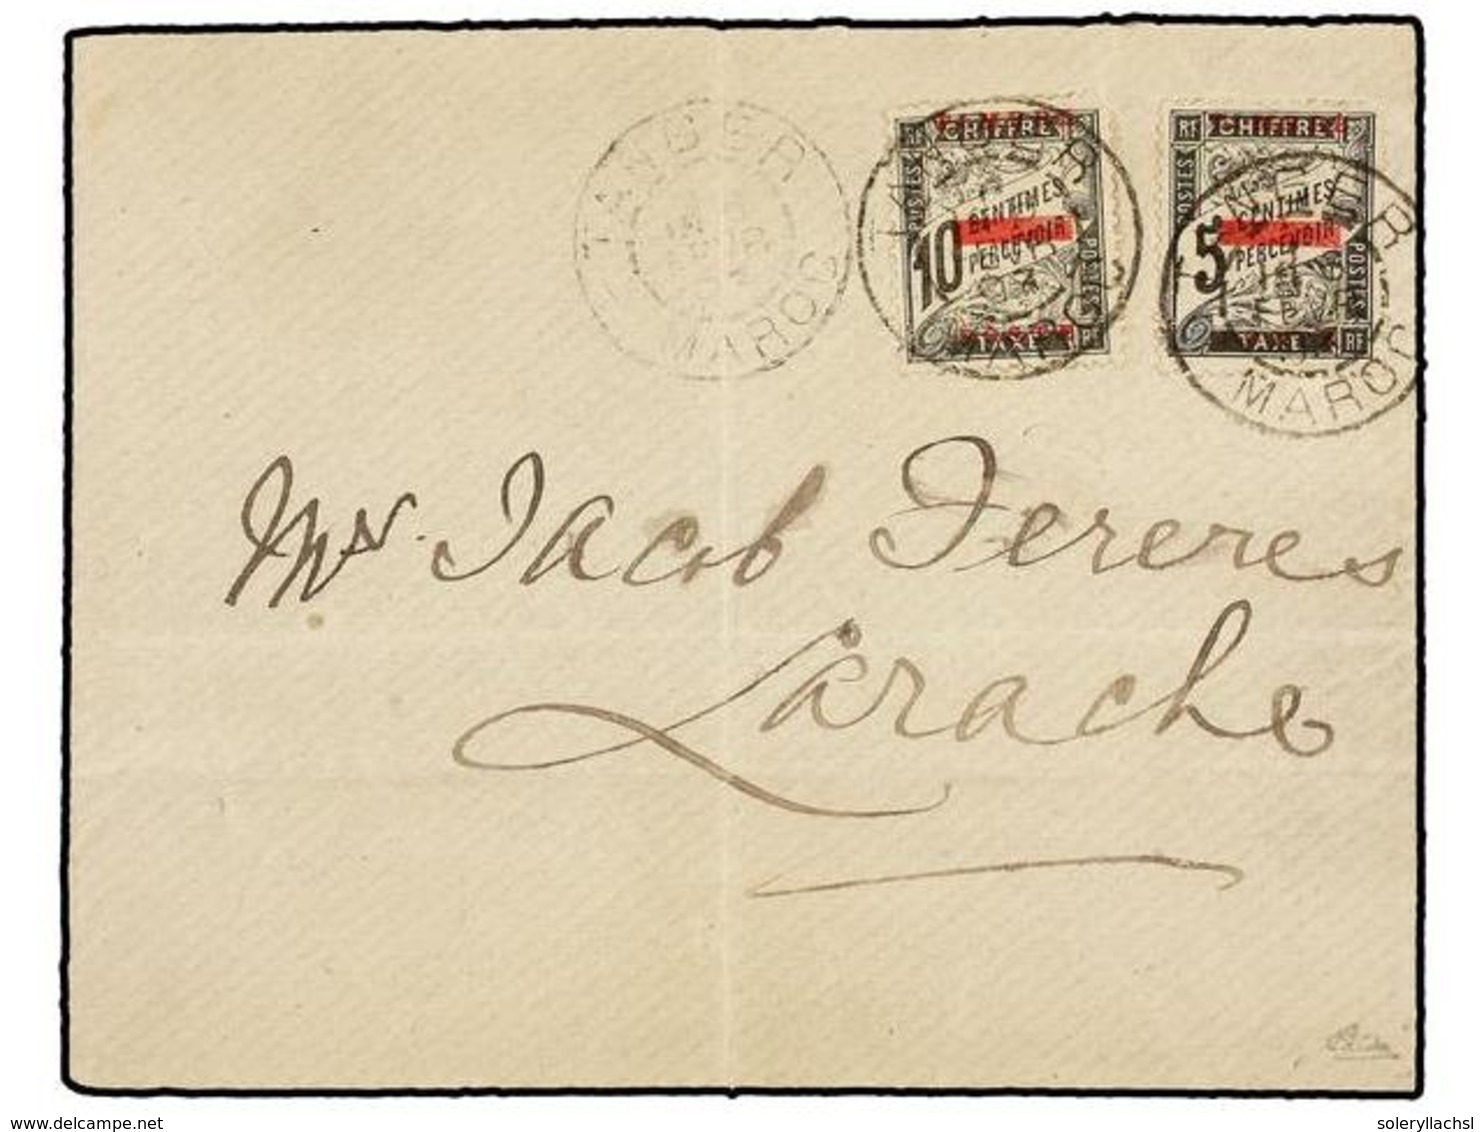 TANGER
MAROC
CHIFFRE
POSTES
10
CENTIMES
À
PERCEVOIR
POSTES
TAXE
TANGER
MAROC
RF
CHIFFRE
POSTES
5
CENTIMES
À
PERCEVOIR
POSTES
TAXE
RF
TANGER
MAROC
Mr. Jacob Fereres
Larache
www.delcampe.net
soleryllachsl